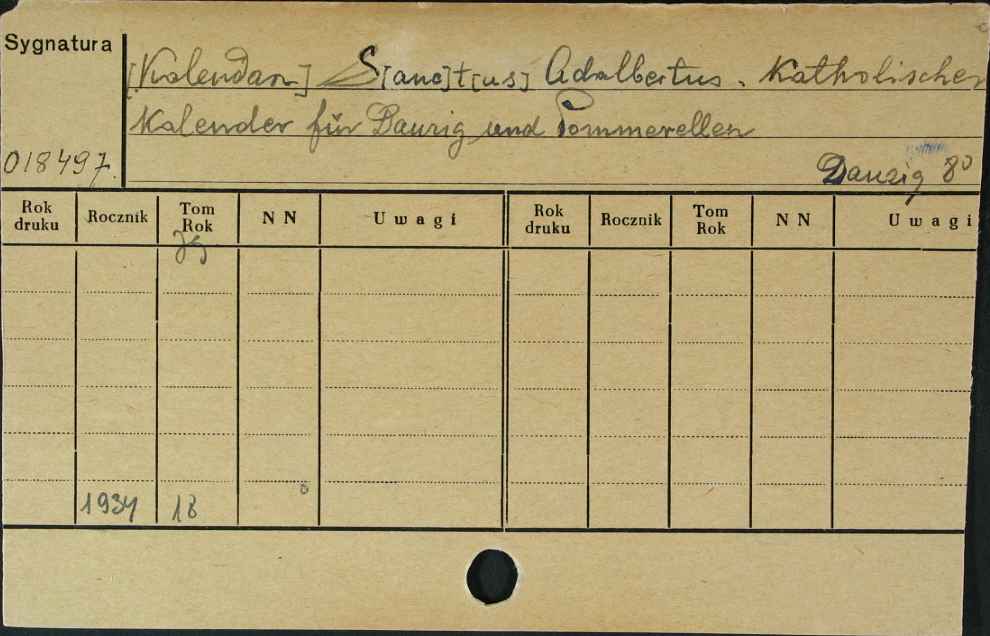 Sygnatura
[Kalendarz] S[anc]t[us] Adalbertus. Katholischer
Kalender für Danzig und Pommerellen
018497.
Danzig 8°
Rok druku Rocznik Tom Rok NN Uwagi Rok druku Rocznik Tom Rok NN Uwagi
Jg
1934 18